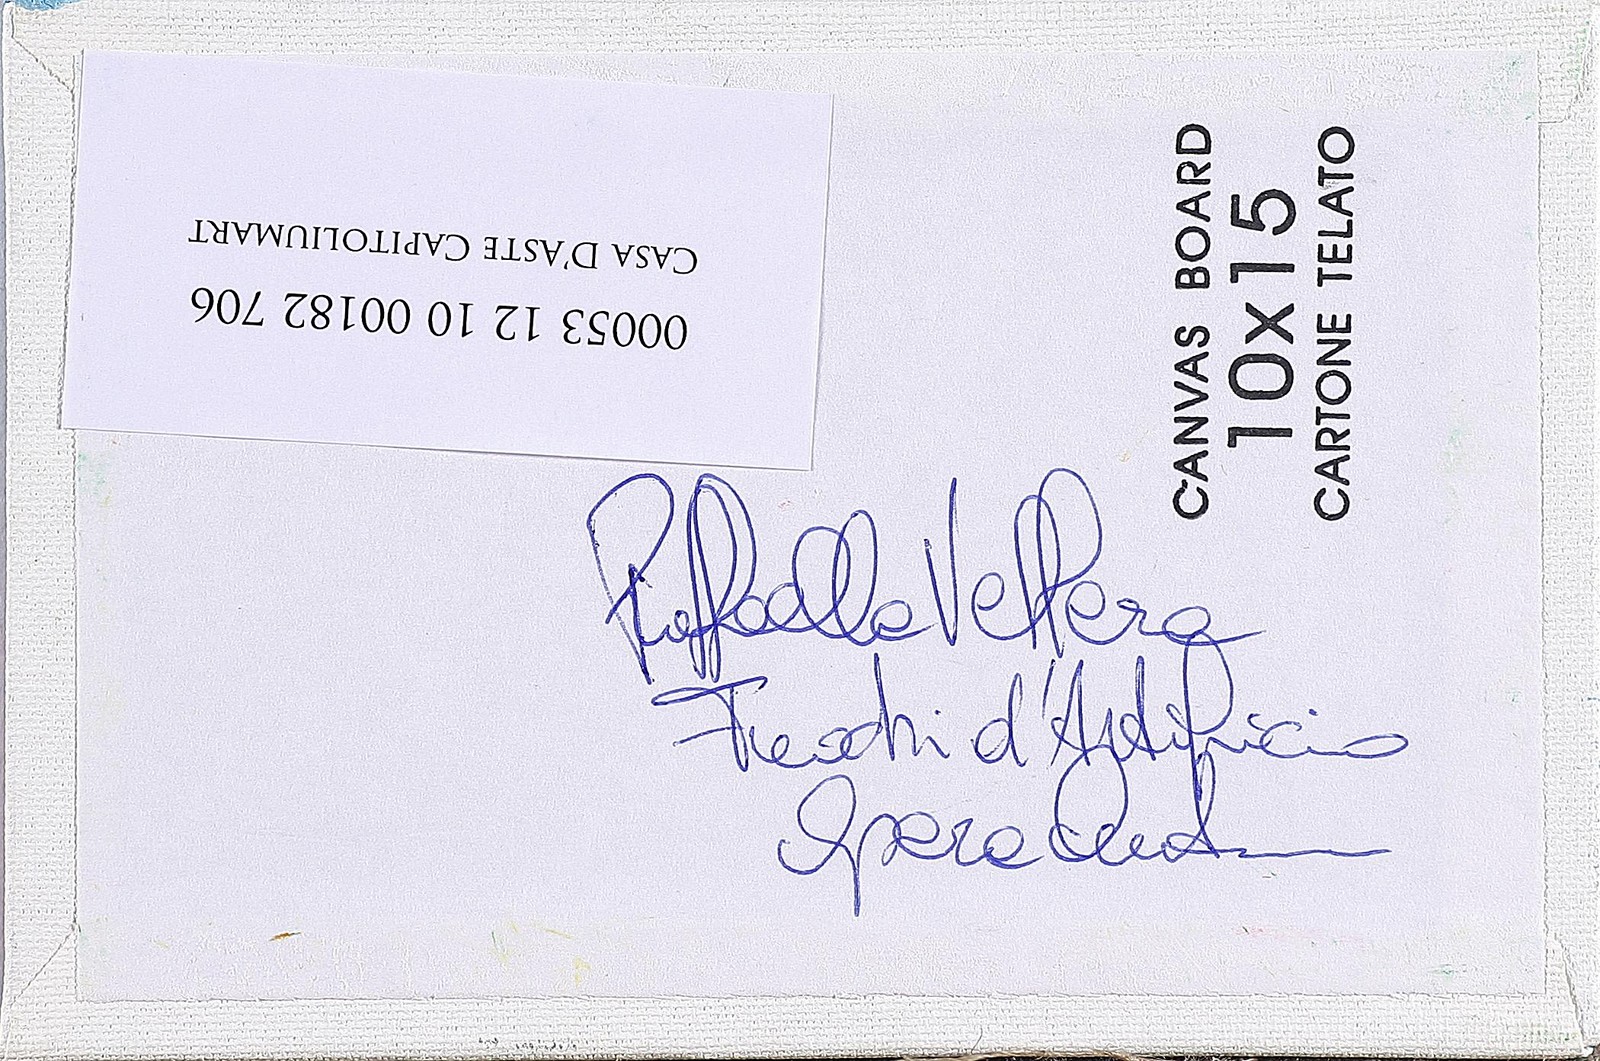 00053 12 10 00182 706
CASA D'ASTE CAPITOLIUMART
CANVAS BOARD
10x15
CARTONE TELATO
Raffaella
Fuochi d'Artificio
Opera